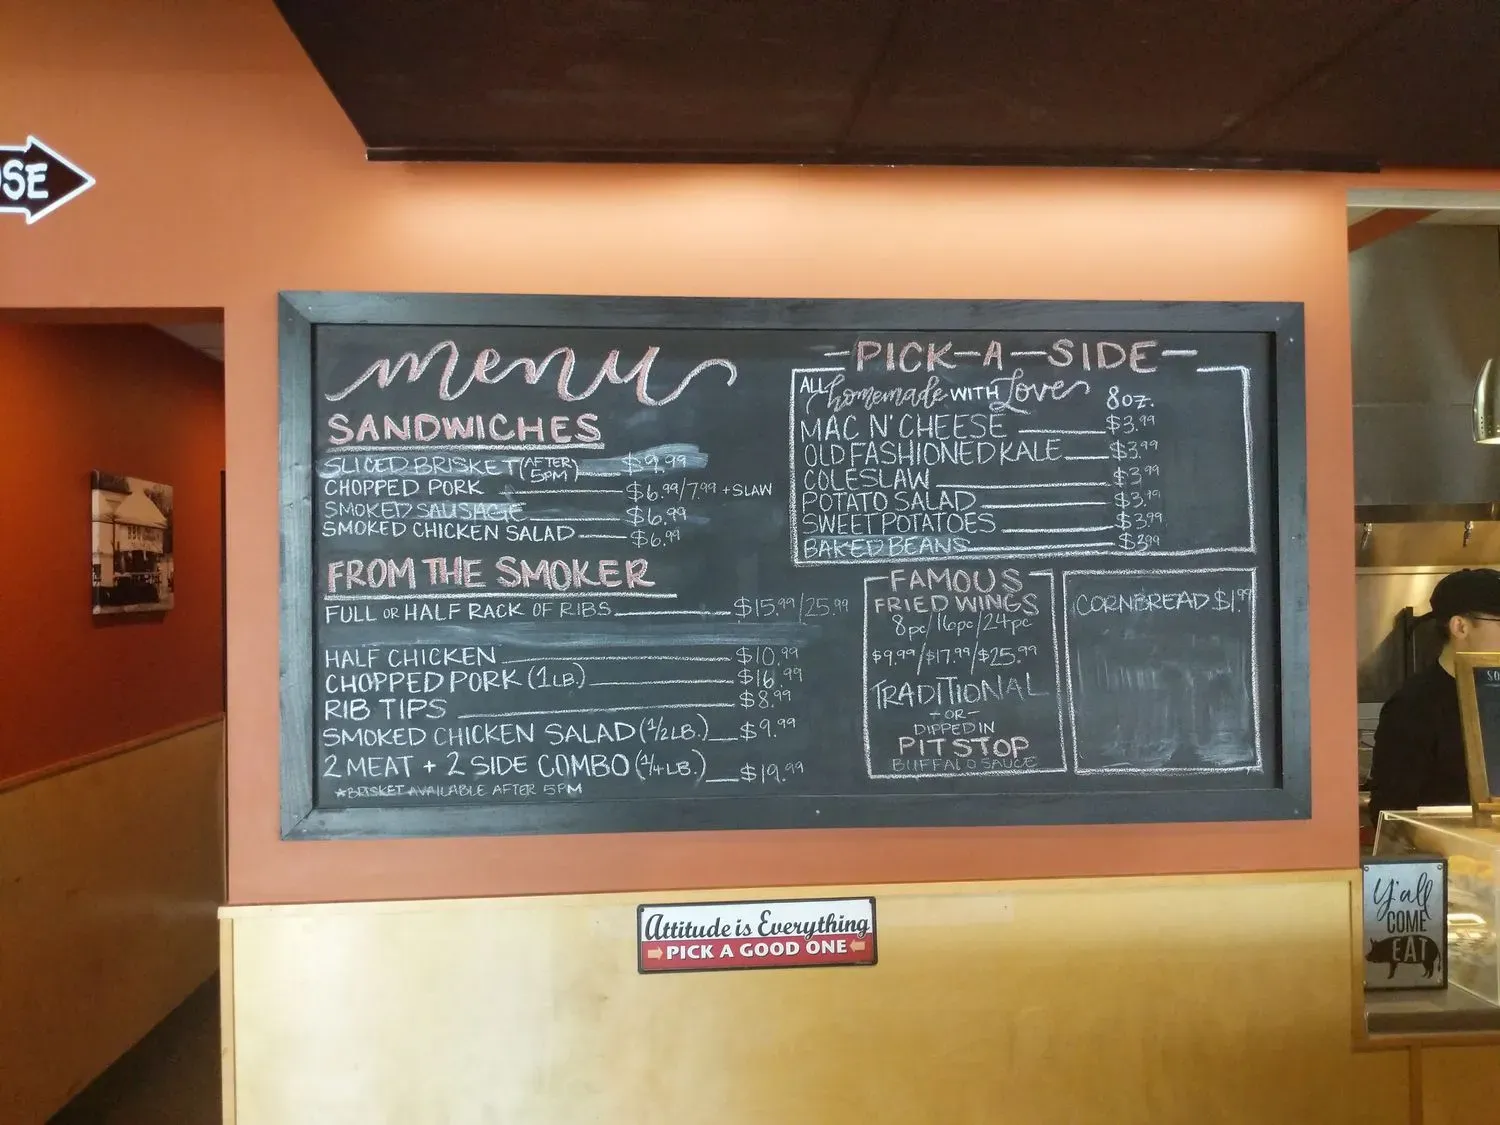 OSE
menu
SANDWICHES
SLICED BRISKET (AFTER 5PM) $9.99
CHOPPED PORK $6.99/7.99 + SLAW
SMOKED SAUSAGE $6.99
SMOKED CHICKEN SALAD $6.99
FROM THE SMOKER
FULL OR HALF RACK OF RIBS $15.99/25.99
HALF CHICKEN $10.99
CHOPPED PORK (1LB.) $16.99
RIB TIPS $8.99
SMOKED CHICKEN SALAD (1/2 LB.) $9.99
2 MEAT + 2 SIDE COMBO (1/4 LB.) $19.99
*BRISKET AVAILABLE AFTER 5PM
-PICK-A-SIDE-
ALL homemade WITH Love 8oz.
MAC N' CHEESE $3.99
OLD FASHIONED KALE $3.99
COLESLAW $3.99
POTATO SALAD $3.99
SWEET POTATOES $3.99
BAKED BEANS $3.99
FAMOUS
FRIED WINGS
8pc/16pc/24pc
$9.99/$17.99/$25.99
TRADITIONAL
-OR-
DIPPED IN
PIT STOP
BUFFALO SAUCE
CORNBREAD $1.99
Attitude is Everything
PICK A GOOD ONE
Y'all
COME
EAT